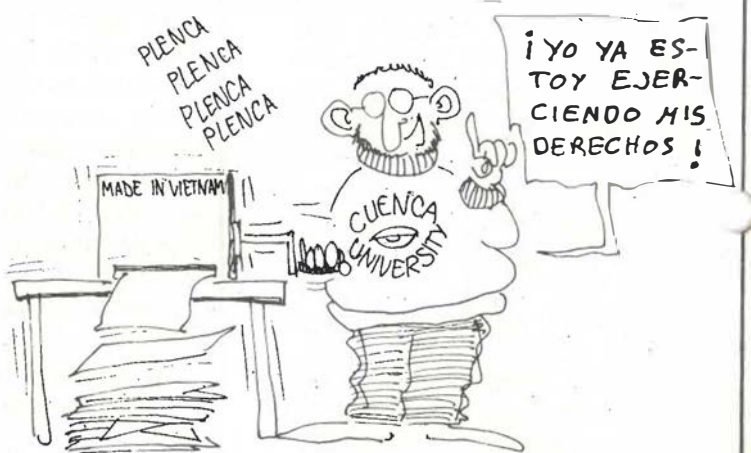 PLENCA
PLENCA
PLENCA
PLENCA
¡YO YA ES-
TOY EJER-
CIENDO MIS
DERECHOS!
MADE IN VIETNAM
CUENCA
UNIVERSITY